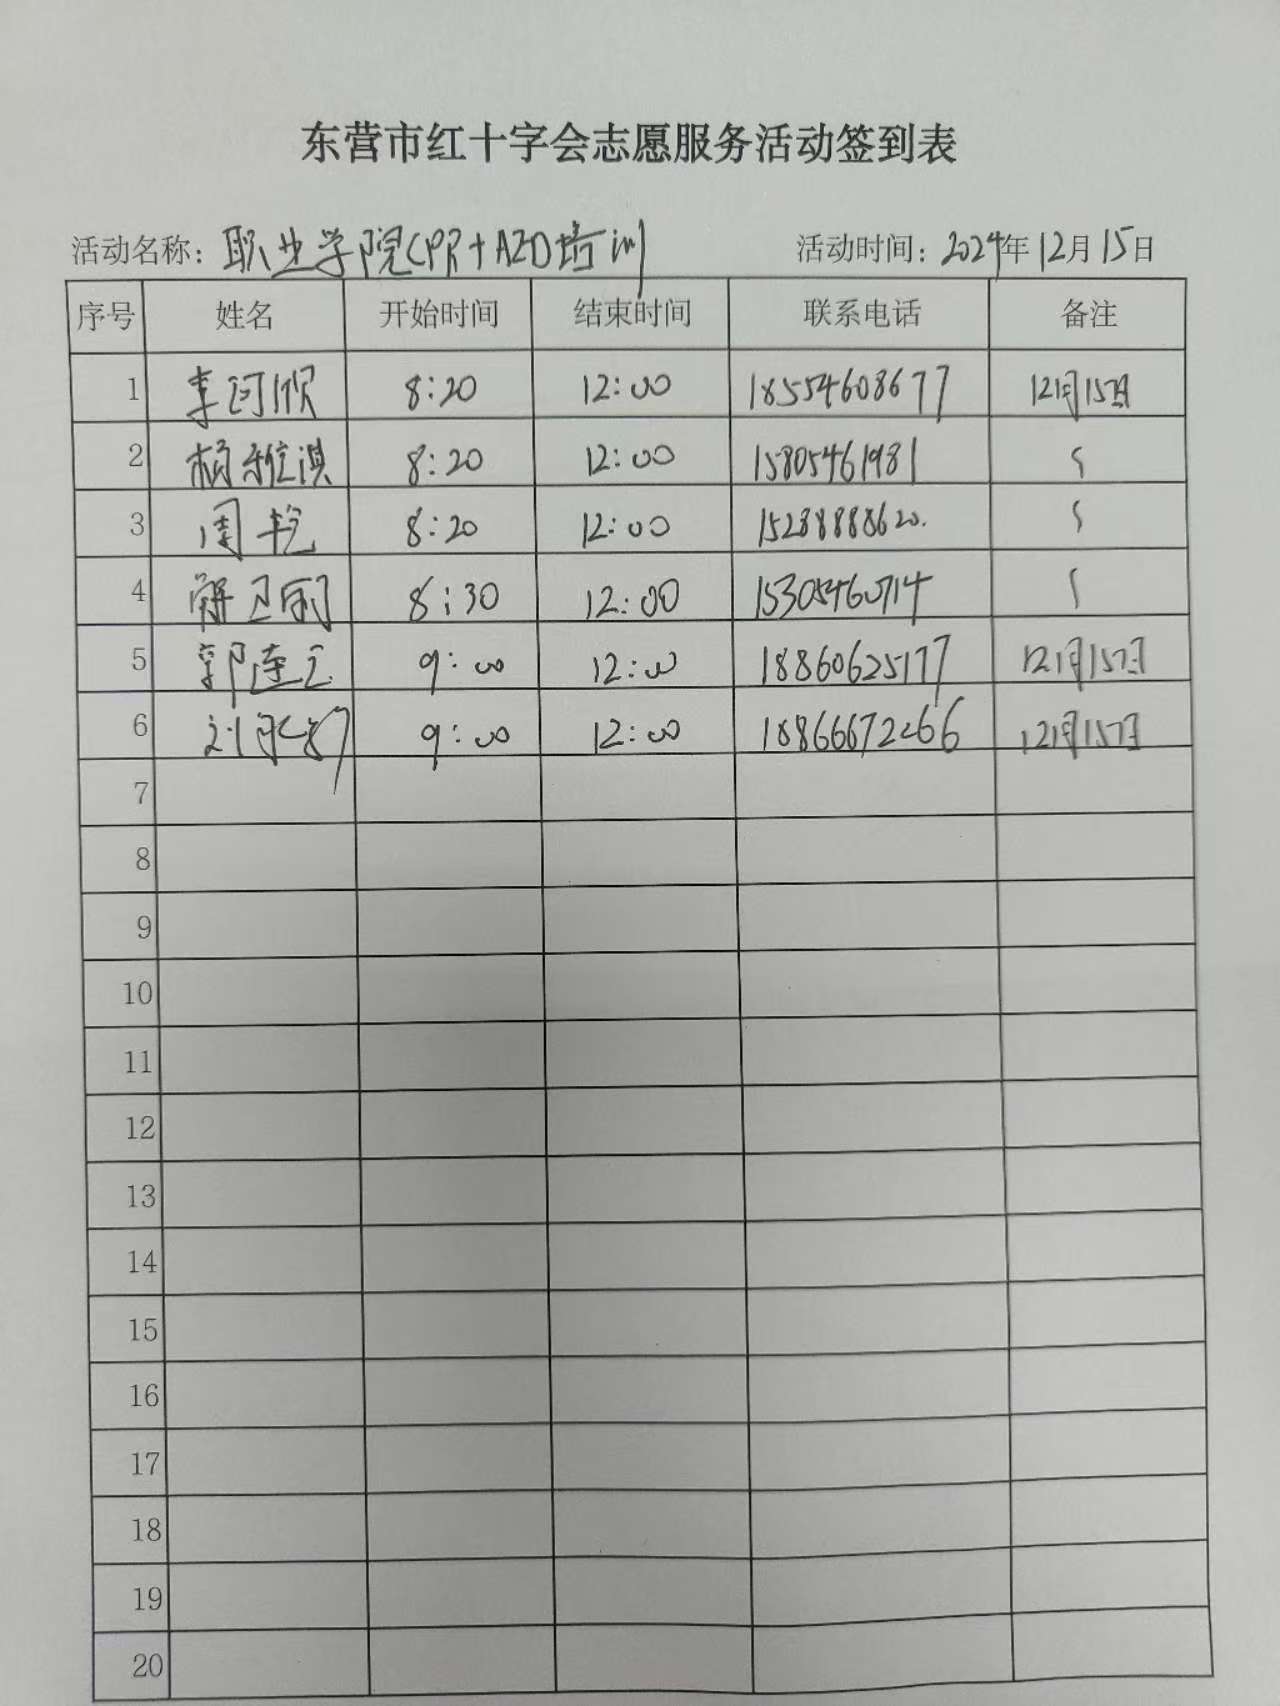 东营市红十字会志愿服务活动签到表
活动名称：职业学院CPR+AED培训 活动时间：2024年12月15日
序号 姓名 开始时间 结束时间 联系电话 备注
1 李可欣 8:20 12:00 18554608677 12月15日
2 杨雅淇 8:20 12:00 15805461981
3 周乾 8:20 12:00 15288888620.
4 解卫丽 8:30 12:00 15305460714
5 郭莲玉 9:00 12:00 18860625177 12月15日
6 刘 9:00 12:00 18866672266 12月15日
7
8
9
10
11
12
13
14
15
16
17
18
19
20